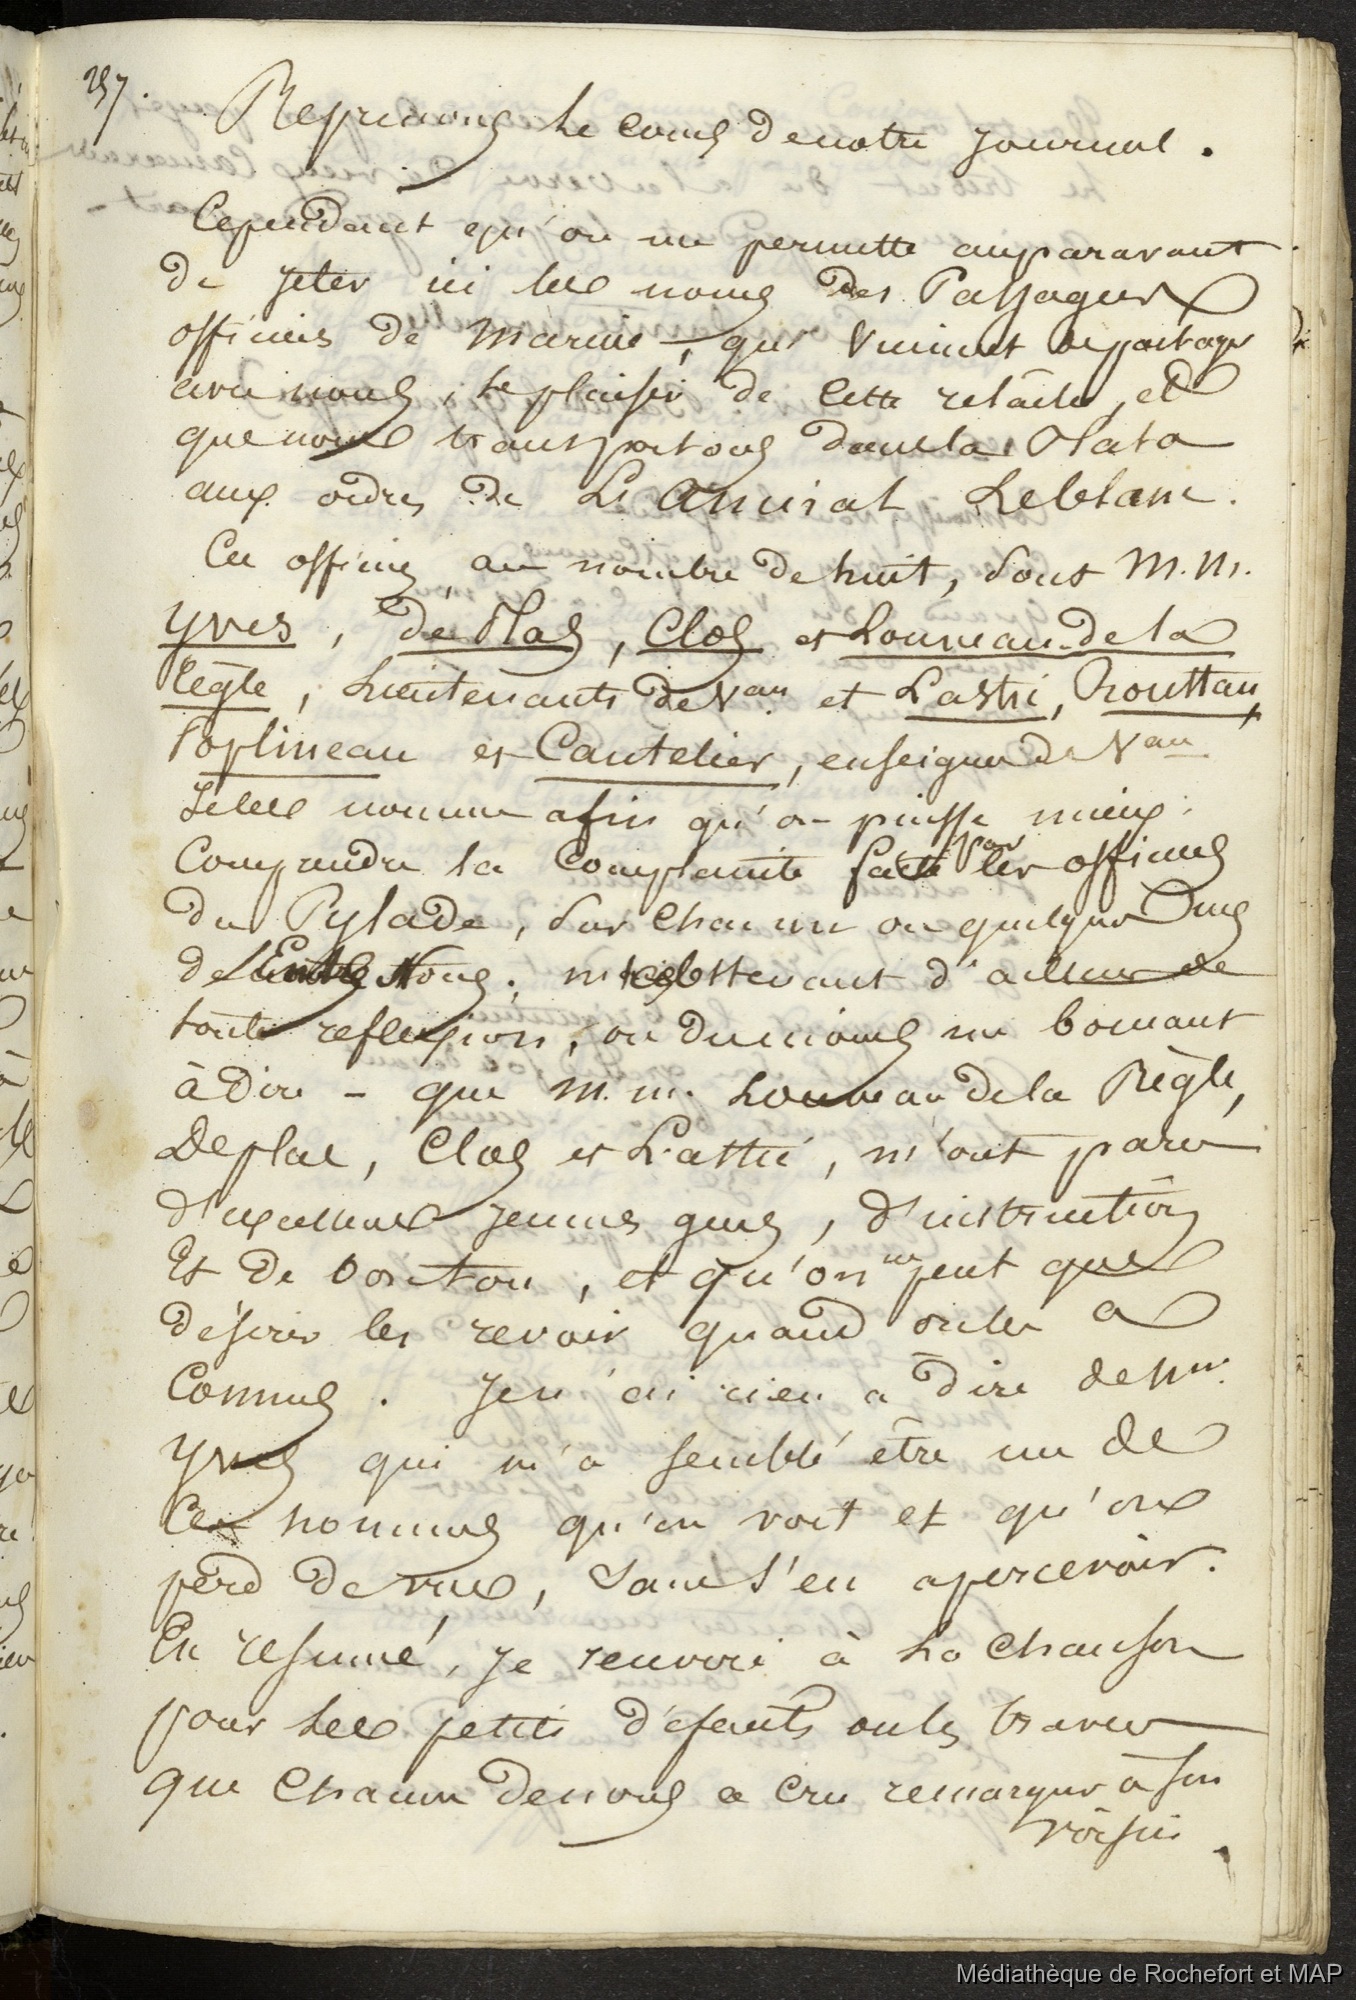 257.
Reprenons le cours de notre journal.
Cependant qu'on me permette auparavant
de jeter ici les noms des Passagers
officiers de marine, qui vinrent partager
avec nous, le plaisir de cette relâche, et
que nous transportons dans la Plata
aux ordres de L'Amiral Leblanc.
Ces officiers, au nombre de huit, sont M.M.
Yves, de Plas, Clos et Louveau de la
Règle, Lieutenants de Vau et Lastri, Routtan,
Poplineau et Cantelier, enseignes de Vau
Je les nomme afin qu'on puisse mieux
Comprendre la Complainte faite par les officiers
du Pylade, sur chacun ou quelques uns
de Nous; m'abstenant d'ailleurs de
toute reflexion, ou du moins me bornant
à dire - que M.M. Louveau de la Règle,
Deplas, Clos et Lastri, m'ont paru
d'excellents jeunes gens, d'instruction
Et de bon ton, et qu'on ne peut que
désirer les revoir quand on les a
Connus. Je n'ai rien a dire de Mr.
Yves qui m'a semblé être un de
Ces hommes qu'on voit et qu'on
perd de vue, sans s'en apercevoir.
En resumé, je renvoie à La Chanson
pour les petits défauts ou les travers
que Chacun de nous a cru remarquer à son
voisin
Médiathèque de Rochefort et MAP